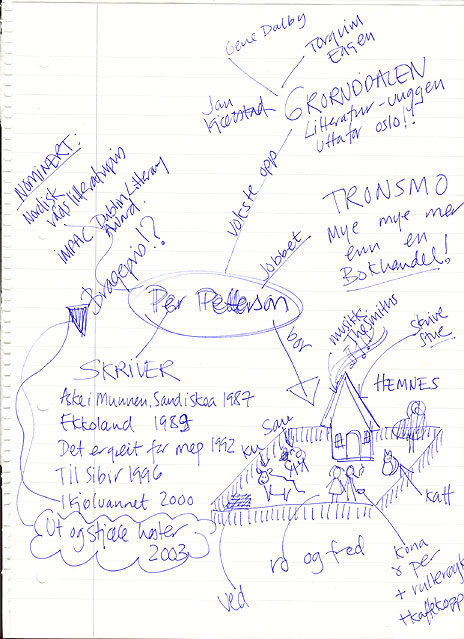 Gene Dalby
Torquim
Eagen
Jan
Kjærstad
GRORUDDALEN
Litteratur-vuggen
Uttafor oslo!?
vokste opp
NOMINERT:
Nordisk
råds litteraturpris
IMPAC Dublin Literary
Award
Bragepris!?
TRONSMO
Mye mye mer
enn en
Bokhandel!
jobbet
Per Petterson
bor
musikk:
The Smiths
skrive
stue
HEMNES
SKRIVER
Aske i Munnen, Sand i skoa 1987
Ekkoland 1989
Det er greit for meg 1992
Til Sibir 1996
I kjølvannet 2000
Ut og stjæle hester
2003
Ku
Sau
katt
ved
ro og fred
kona
& per
+ rullerøyk
+ kaffekopp